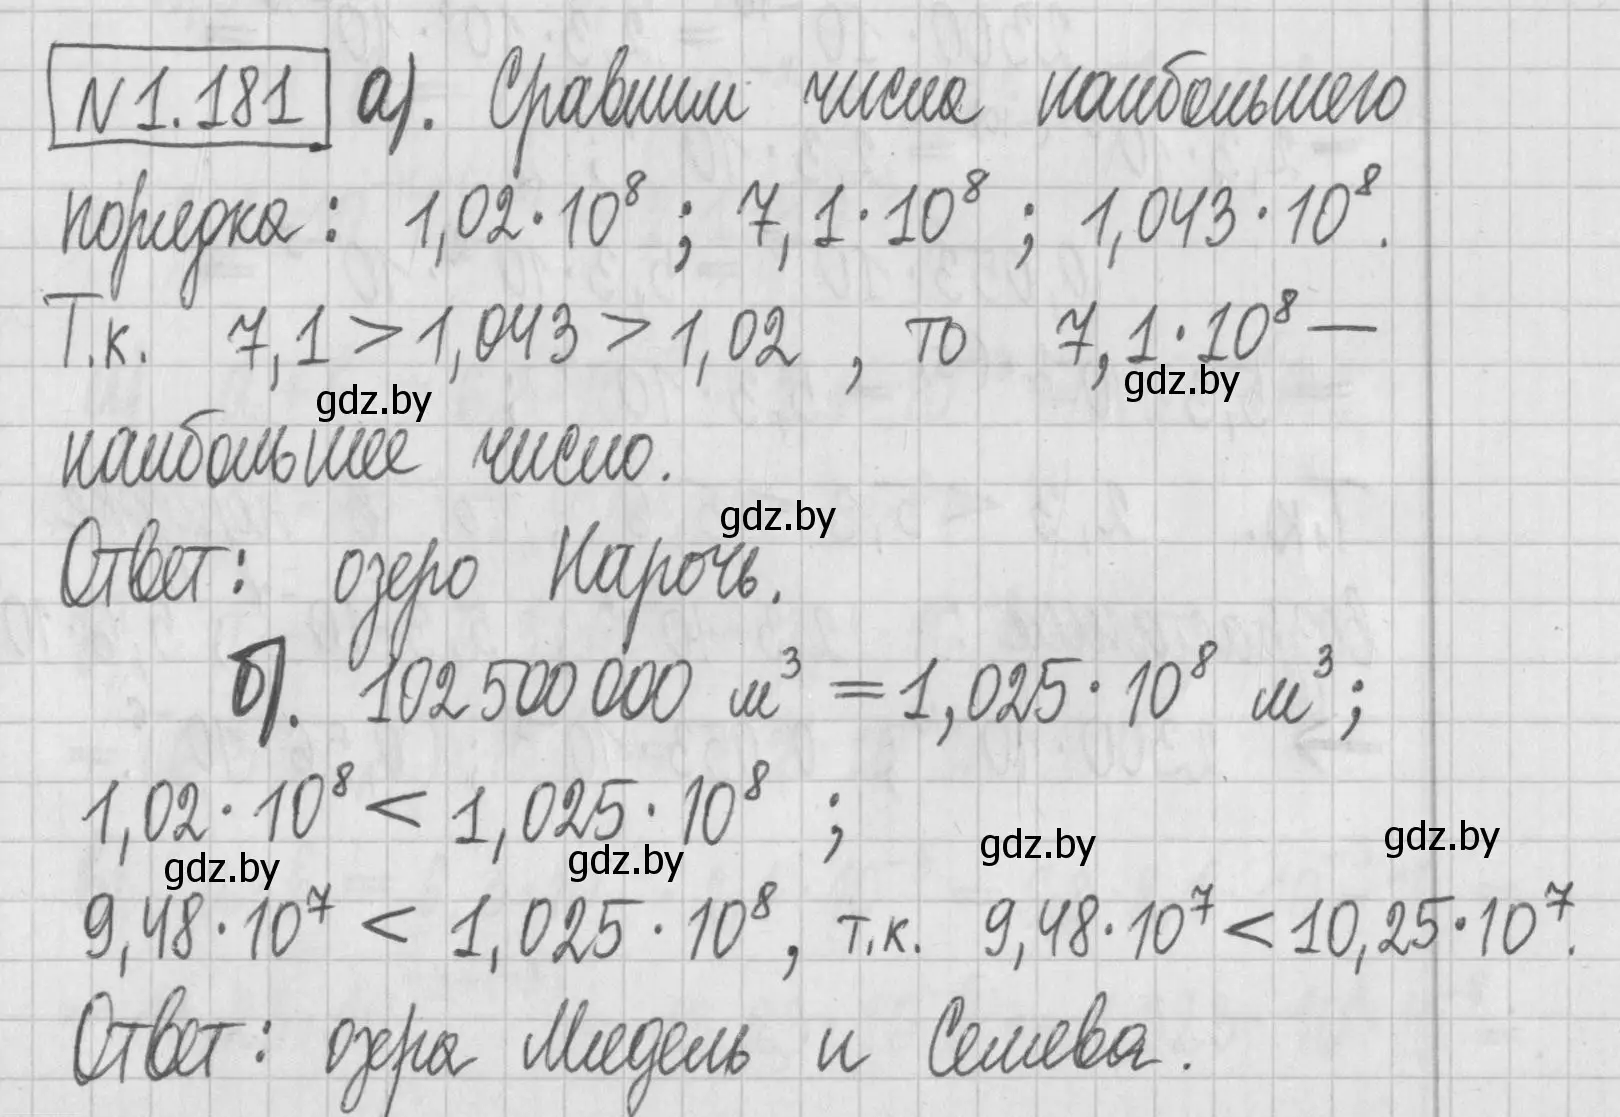 N 1.181 а). Сравним числа наибольшего
порядка: 1,02·10⁸ ; 7,1·10⁸ ; 1,043·10⁸.
Т.к. 7,1 > 1,043 > 1,02 , то 7,1·10⁸ —
gdz.by gdz.by
наибольшее число.
gdz.by
Ответ: озеро Нарочь.
б). 102 500 000 м³ = 1,025·10⁸ м³ ;
1,02·10⁸ < 1,025·10⁸ ;
gdz.by gdz.by gdz.by gdz.by
9,48·10⁷ < 1,025·10⁸, т.к. 9,48·10⁷ < 10,25·10⁷.
Ответ: озера Мядель и Селява.